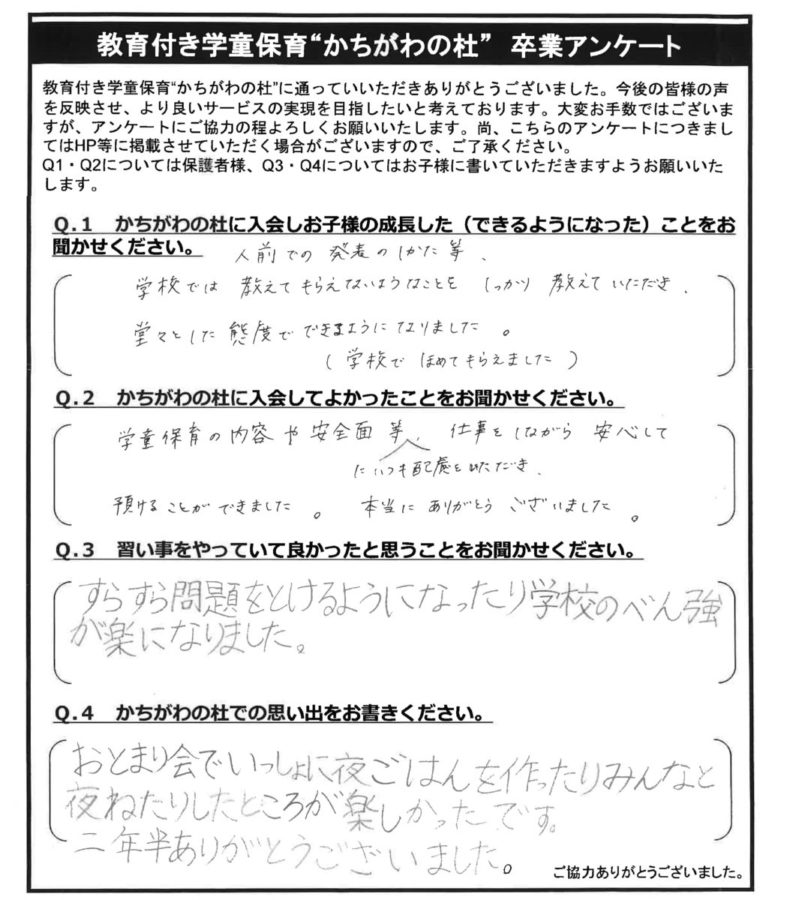 教育付き学童保育“かちがわの杜” 卒業アンケート
教育付き学童保育“かちがわの杜”に通っていいただきありがとうございました。今後の皆様の声
を反映させ、より良いサービスの実現を目指したいと考えております。大変お手数ではございま
すが、アンケートにご協力の程よろしくお願いいたします。尚、こちらのアンケートにつきまし
てはHP等に掲載させていただく場合がございますので、ご了承ください。
Q1・Q2については保護者様、Q3・Q4についてはお子様に書いていただきますようお願いいた
します。
Q.1 かちがわの杜に入会しお子様の成長した（できるようになった）ことをお
聞かせください。
人前での発表のしかた等、
学校では教えてもらえないようなことをしっかり教えていただき、
堂々とした態度でできるようになりました。
(学校でほめてもらえました)
Q.2 かちがわの杜に入会してよかったことをお聞かせください。
学童保育の内容や安全面等、仕事をしながら安心して
にいつも配慮をいただき、
預けることができました。本当にありがとうございました。
Q.3 習い事をやっていて良かったと思うことをお聞かせください。
すらすら問題をとけるようになったり学校のべん強
が楽になりました。
Q.4 かちがわの杜での思い出をお書きください。
おとまり会でいっしょに夜ごはんを作ったりみんなと
夜ねたりしたところが楽しかったです。
二年半ありがとうございました。
ご協力ありがとうございました。